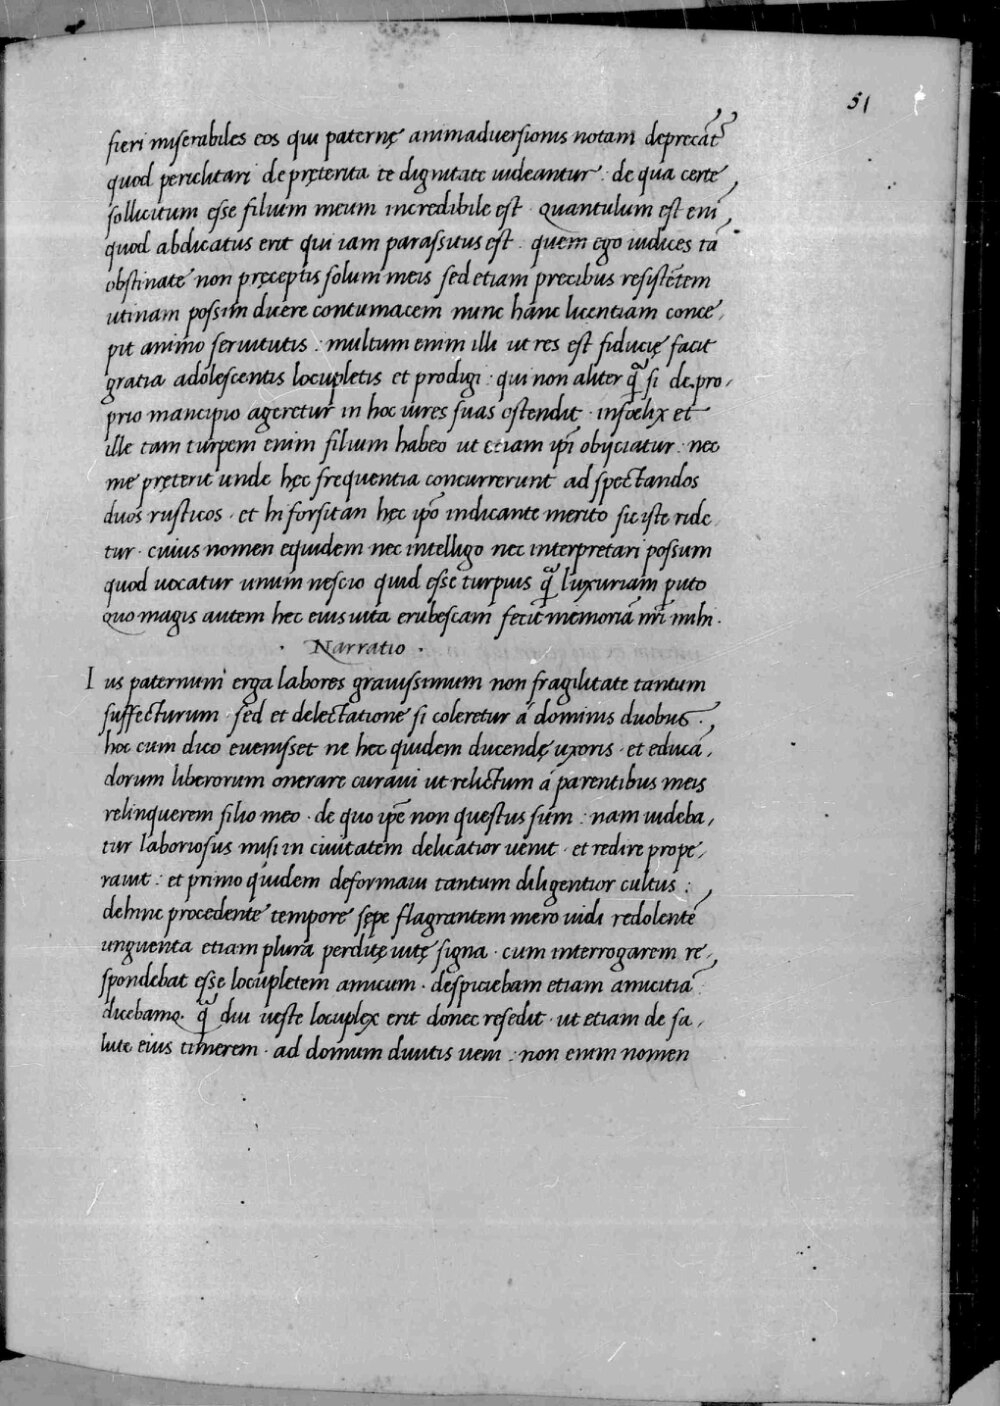 51
fieri miserabiles eos qui paternę animadversionis notam deprecāt
quod periclitari de pręterita te dignitate uideantur : de qua certe
sollicitum esse filium meum incredibile est · Quantulum est eni,
quod abdicatus erit qui iam parassitus est . quem ego iudices tā
obstinate non pręceptis solum meis sed etiam precibus resistētem
utinam possim dicere contumacem nunc hanc licentiam conce,
pit animo seruitutis : multum enim illi ut res est fiducię facit
gratia adolescentis locupletis et prodigi : qui non aliter q̄ si de pro,
prio mancipio ageretur in hoc uires suas ostendit · infœlix et
ille tam turpem enim filium habeo ut etiam ip̄i obijciatur : nec
me pręterit unde hęc frequentia concurrerunt ad spectandos
duos rusticos · et hi forsitan hęc ip̄o indicante merito sic iste ride
tur · cuius nomen equidem nec intelligo nec interpretari possum
quod uocatur unum nescio quid esse turpius q̄ luxuriam puto
quo magis autem hec eius uita erubescam fecit memoriā nr̄i mihi ·
· Narratio ·
Ius paternum erga labores grauissimum non fragilitate tantum
suffecturum · sed et delectatione si coleretur á dominis duobus ·,
hoc cum dico euenisset ne hec quidem ducendę uxoris · et educā,
dorum liberorum onerare curaui ut relictum á parentibus meis
relinquerem filio meo · de quo ip̄e non questus sum : nam uideba,
tur laboriosus nisi in ciuitatem delicatior uenit · et redire prope,
rauit : et primo quidem deformaui tantum diligentior cultus :,
dehinc procedente tempore sępe flagrantem mero uidi redolentē
unguenta etiam plura perditę uitę signa · cum interrogarem re,
spondebat esse locupletem amicum · despiciebam etiam amicitiā
dicebamq. q̄ diu ueste locuplex erit donec resedit · ut etiam de sa,
lute eius timerem · ad domum diuitis ueni : non enim nomen